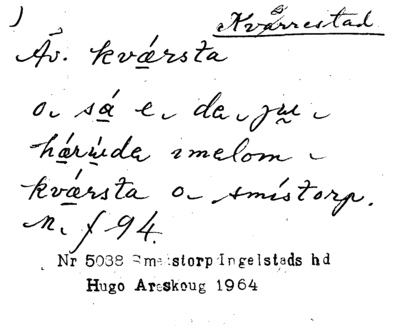 Kvärrestad
Äv. kvársta
o sá e da
hárada imelom
kvársta o smistorp.
n. f 94.
Nr 5038 Smestorp Ingelstads hd
Hugo Areskoug 1964